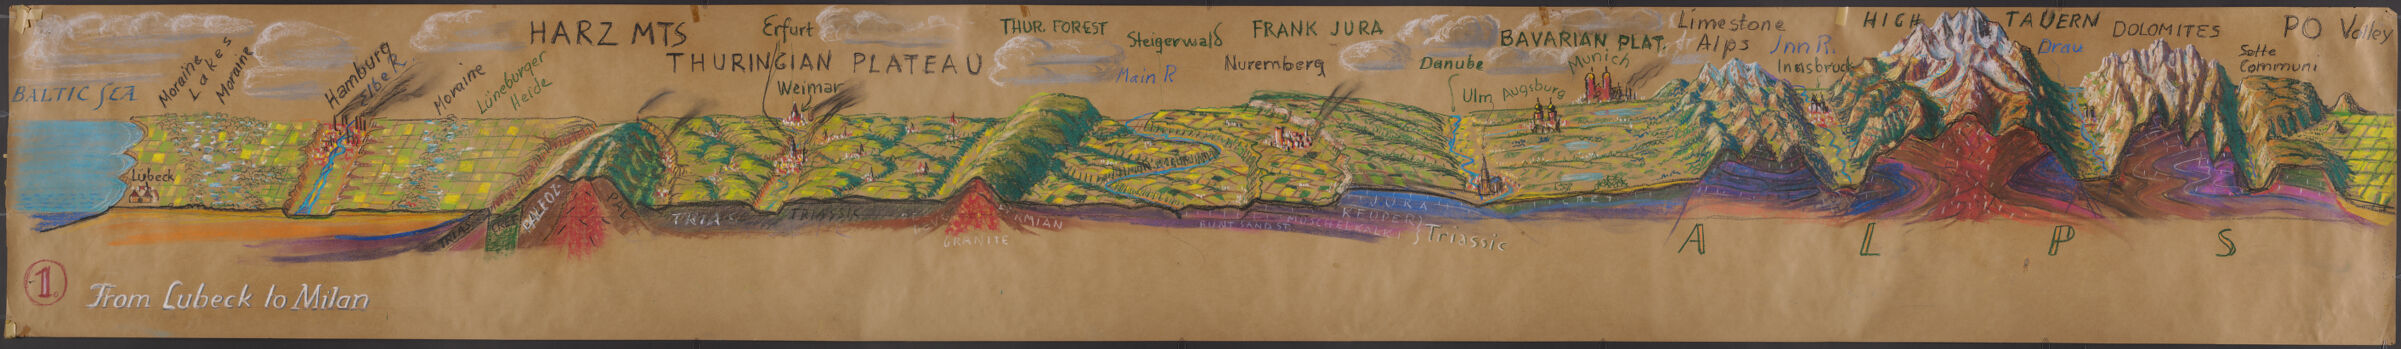 BALTIC SEA
Lübeck
Moraine
Lakes
Moraine
Hamburg
Elbe R.
Moraine
Lüneburger
Heide
HARZ MTS
THURINGIAN PLATEAU
Erfurt
Weimar
THUR. FOREST
Main R
Steigerwald
FRANK JURA
Nuremberg
Danube
Ulm
Augsburg
BAVARIAN PLAT.
Munich
Limestone
Alps
Inn R.
Innsbruck
HIGH TAUERN
Drau
DOLOMITES
Sette
Communi
PO Valley
TRIAS
PALEOZ.
PAL
TRIAS
TRIASSIC
PERMIAN
GRANITE
BUNTSANDST.
MUSCHELKALK
KEUPER
JURA
Triassic
ALPS
1.
From Lubeck to Milan